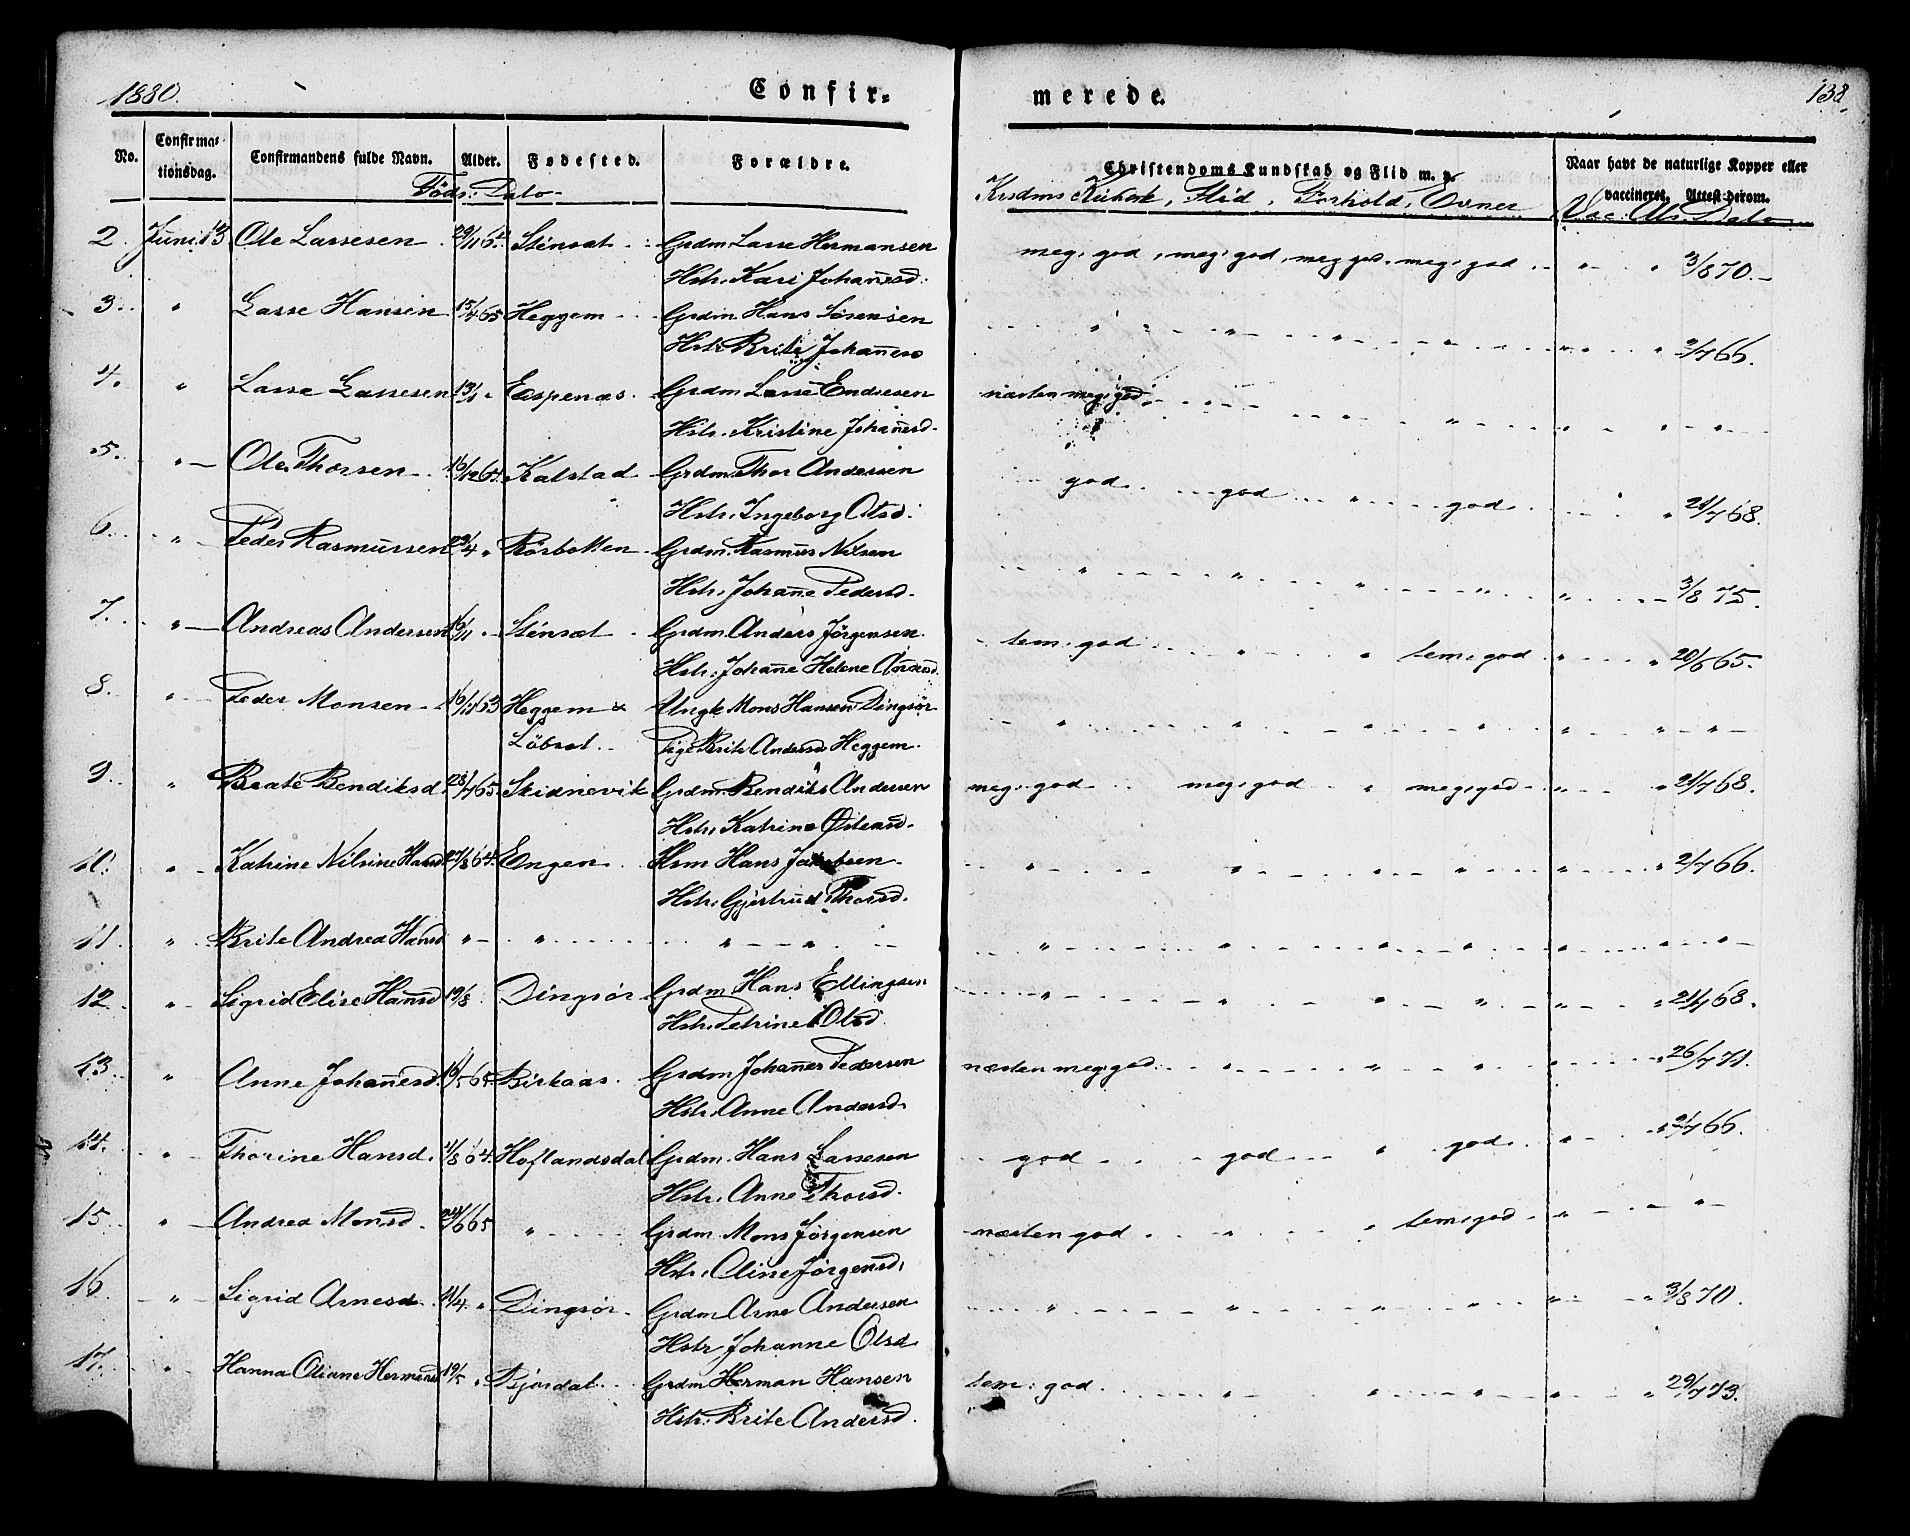 1880.
Confir-
merede.
138.
No.
Confirma-
tionsdag.
Confirmandens fulde Navn.
Alder.
Fødested.
Forældre.
Christendoms Kundskab og Flid m. v.
Naar havt de naturlige Kopper eller
vaccineret, Attest derom.
Föds: Dato
Flid, Forhold, Evner
Vac. Dato
2. Juni 13 Ole Lassesen 29/11 64 Stensæt Grdm Lasse Hermansen
Hstr. Kari Johañesd. meg: god, meg: god, meg god, meg: god " " 3/8 70.
3. " Lasse Hansen 15/4 65 Heggem Grdm. Hans Sörensen
Hstr. Brite Johañesd " " " " " " 2/7 66.
4. " Lasse Lassesen 13/1 " Espenæs. Grdm Lasse Endresen næsten meg: god
Hstr. Kristine Johañesd. " " " " " "
5. " Ole Thorsen 16/12 64. Kalstad Grdm Thor Andersen god god " god
Hstr. Ingeborg Olsd. " 21/7 68.
6. " Peder Rasmussen 23/4 " Rörbotten Grdm. Rasmus Nilsen
Hstr. Johañe Pedersd. " " " " " 3/8 75.
7. " Andreas Andersen 16/11 " Stensæt Grdm. Anders Jörgensen
Hstr. Johañe Helene tem: god " " tem: god " " 20/6 65.
8. " Peder Monsen 16/11 63 Heggem & Ungk Mons Hansen Dingsör
Löbræt. Pige Brite Andersd Heggem. " " " " " " "
9. " Beate Bendiksd. 28/7 65. Skidnevik Grdm. Bendiks Andersen meg: god meg: god " meg: god " " 21/7 68.
Hstr. Katrine Östensd.
10. " Katrine Nilsine Hansd 27/8 64. Engen Hsm Hans Jakobsen " " " " " " 2/7 66.
Hstr. Gjertrud Thorsd.
11. " Brite Andrea Hansd " " " " " " " " " " "
12 " Sigrid Elise Hansd 19/8 Dingsör Grdm Hans Ellingsen " " " " " " 21/7 68.
Hstr. Petrine Olsd.
13. " Anne Johañesd. 16/5 65. Birkaas. Grdm Johañes Pedersen næsten meg: god " " " " " 26/7 71.
Hstr. Anne Andersd.
14. " Thorine Hansd. 4/8 64. Hoflandsdal Grdm. Hans Lassesen god god " god " " 2/7 66.
Hstr. Anne Thorsd.
15 " Andrea Monsd. 24/6 65 " Grdm Mons Jörgensen næsten god " " tem: god " " "
Hstr. Oline Jörgensd.
16 " Sigrid Arnesd 11/4. " Dingsör Grdm Arne Andersen " " " " " " 3/8 70.
Hstr Johanne Olsd
17. " Hanna Oliane Hermansd 19/5 " Bjordal Grdm Herman Hansen tem: god " " " " " 29/7 73.
Hstr. Brite Andersd.